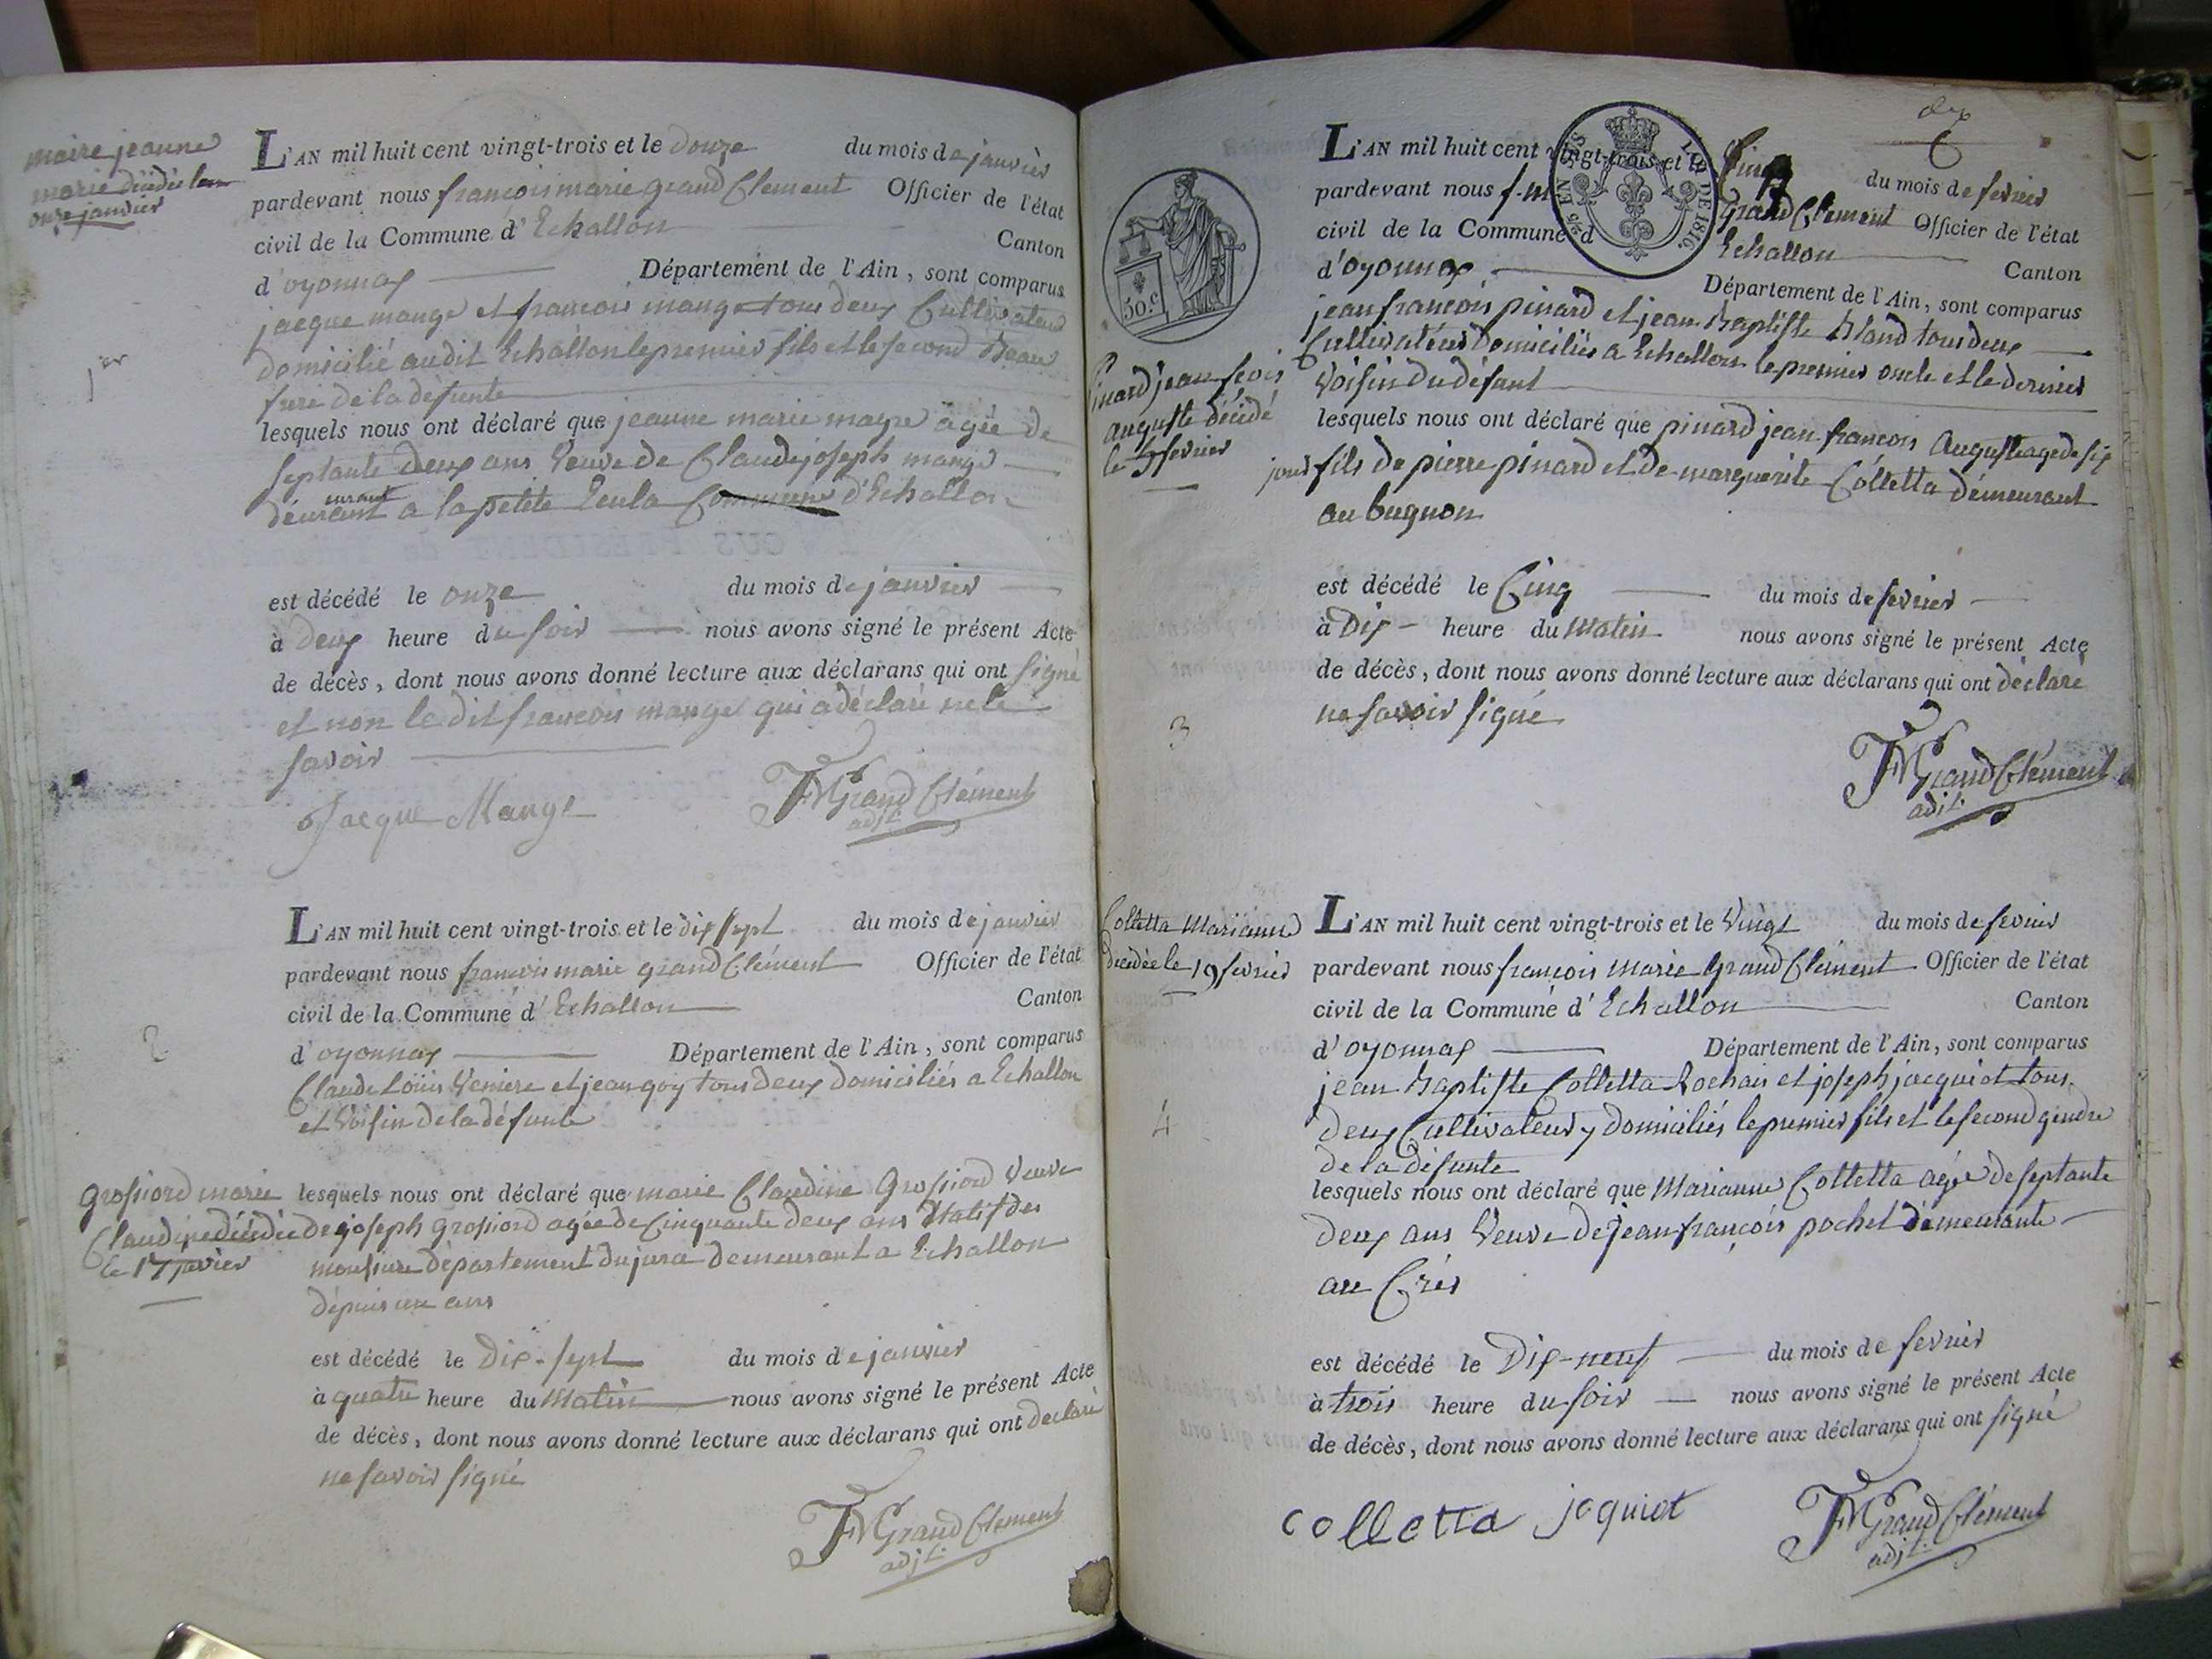 maire jeanne
marie décédée le
onze janvier
L'AN mil huit cent vingt-trois et le douze du mois de janvier
pardevant nous françois marie grand Clement Officier de l'état
civil de la Commune d'Echallon Canton
d'oyonnax Département de l'Ain, sont comparus
jacque mange et francois mange tous deux Cultivateur
domicilié audit Echallon le premier fils et le second Beau
frere de la defunte
1er
lesquels nous ont déclaré que jeanne marie mayre agée de
septante deux ans Veuve de Claude joseph mange
demeurant a la petite Commune d'Echallon
est décédé le onze du mois de janvier
à deux heure du soir nous avons signé le présent Acte
de décès, dont nous avons donné lecture aux déclarans qui ont signé
et non le dit francois mange qui a déclaré ne le
savoir
Jacque Mange
FMGrand Clément
adjt.
L'AN mil huit cent vingt-trois et le dix sept du mois de janvier
pardevant nous francois marie grand Clément Officier de l'état
civil de la Commune d'Echallon Canton
2
d'oyonnax Département de l'Ain, sont comparus
Claude Louis Veniere et jean goy tous deux domiciliés a Echallon
et Voisin de la défunte
Grossiord marie
Claudine décédée
le 17 janvier
lesquels nous ont déclaré que marie Claudine Grossiord Veuve
de joseph Grossiord agée de Cinquante deux ans Natif des
moussiere département du jura demeurant a Echallon
depuis un ans
est décédé le Dix-sept du mois de janvier
à quatre heure du Matin nous avons signé le présent Acte
de décès, dont nous avons donné lecture aux déclarans qui ont declaré
ne savoir signé
FMGrand Clement
adjt.
6
2/5 EN SUS LOI DE 1816.
50.c
L'AN mil huit cent vingt-trois et le Cinq du mois de fevrier
pardevant nous f.m Grand Clement Officier de l'état
civil de la Commune d Echallon Canton
d'oyonnax Département de l'Ain, sont comparus
jean francois pinard et jean Baptiste Bland tous deux
Cultivateurs Domiciliés a Echallon le premier oncle et le dernier
Voisin du défunt
Pinard jean fcois
auguste décédé
le 5 fevrier
lesquels nous ont déclaré que pinard jean francois Auguste agé de six
jours fils de pierre pinard et de marguerite Colletta demeurant
au bugnon
est décédé le Cinq du mois de fevrier
à Dix heure du Matin nous avons signé le présent Acte
de décès, dont nous avons donné lecture aux déclarans qui ont déclaré
ne savoir signé
3
FMGrand Clément
adjt.
Colletta Marianne
décédée le 19 fevrier
L'AN mil huit cent vingt-trois et le Vingt du mois de fevrier
pardevant nous francois Marie Grand Clément Officier de l'état
civil de la Commune d'Echallon Canton
d'oyonnax Département de l'Ain, sont comparus
jean Baptiste Colletta Rochais et joseph jacquiot tous
4
deux Cultivateurs y domiciliés le premier fils et le second gendre
de la défunte
lesquels nous ont déclaré que Marianne Colletta agée de septante
deux ans Veuve de jean françois pochet demeurante
au Crès
est décédé le Dix-neuf du mois de fevrier
à trois heure du soir nous avons signé le présent Acte
de décès, dont nous avons donné lecture aux déclarans qui ont signé
colletta
jaquiot
FMGrand Clément
adjt.